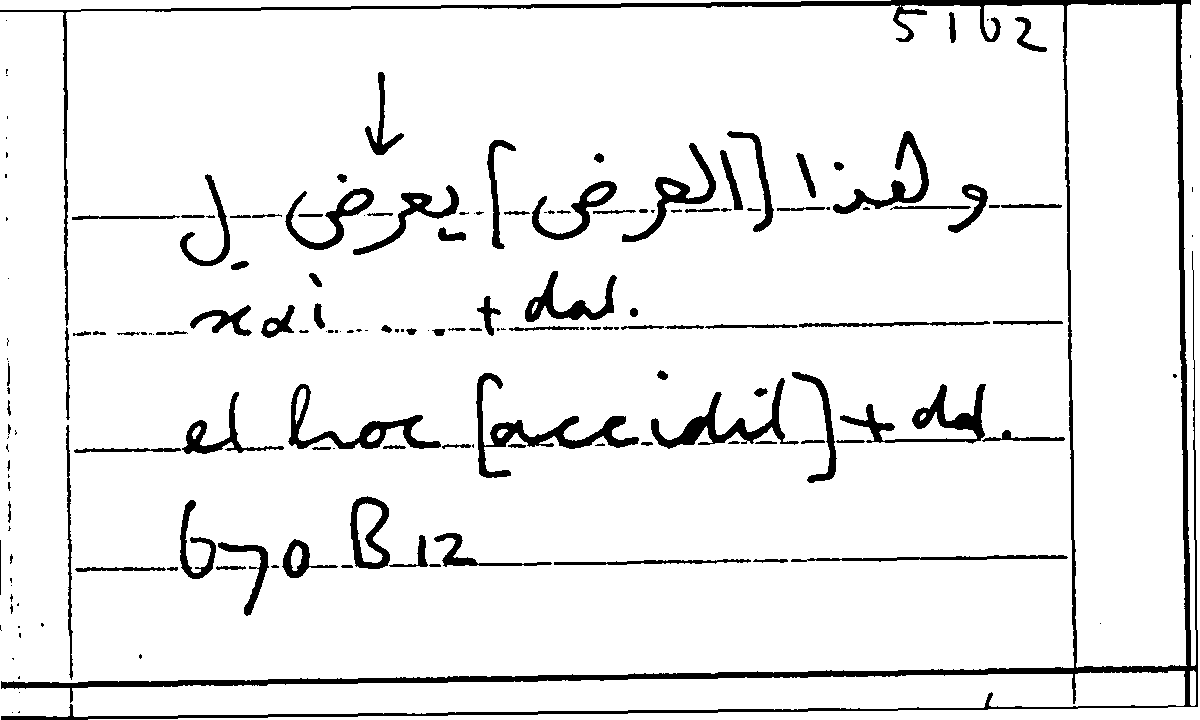 5102
وهذا [العرض] يعرض لـ
και ... + dat.
et hoc [accidit] + dat.
670 B 12